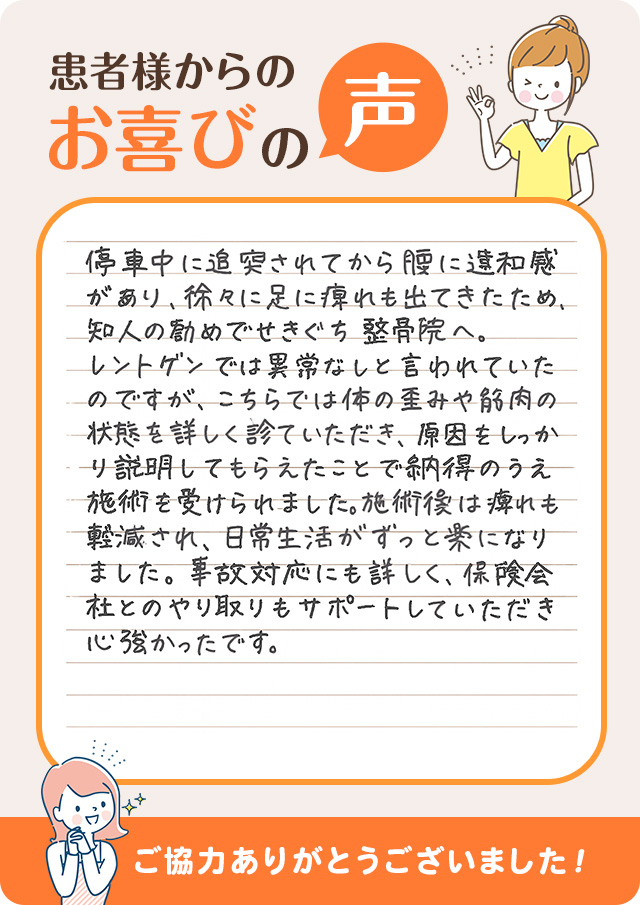 患者様からの
お喜びの
声
停車中に追突されてから腰に違和感
があり、徐々に足に痺れも出てきたため、
知人の勧めでせきぐち整骨院へ。
レントゲンでは異常なしと言われていた
のですが、こちらでは体の歪みや筋肉の
状態を詳しく診ていただき、原因をしっか
り説明してもらえたことで納得のうえ
施術を受けられました。施術後は痺れも
軽減され、日常生活がずっと楽になり
ました。事故対応にも詳しく、保険会
社とのやり取りもサポートしていただき
心強かったです。
ご協力ありがとうございました!